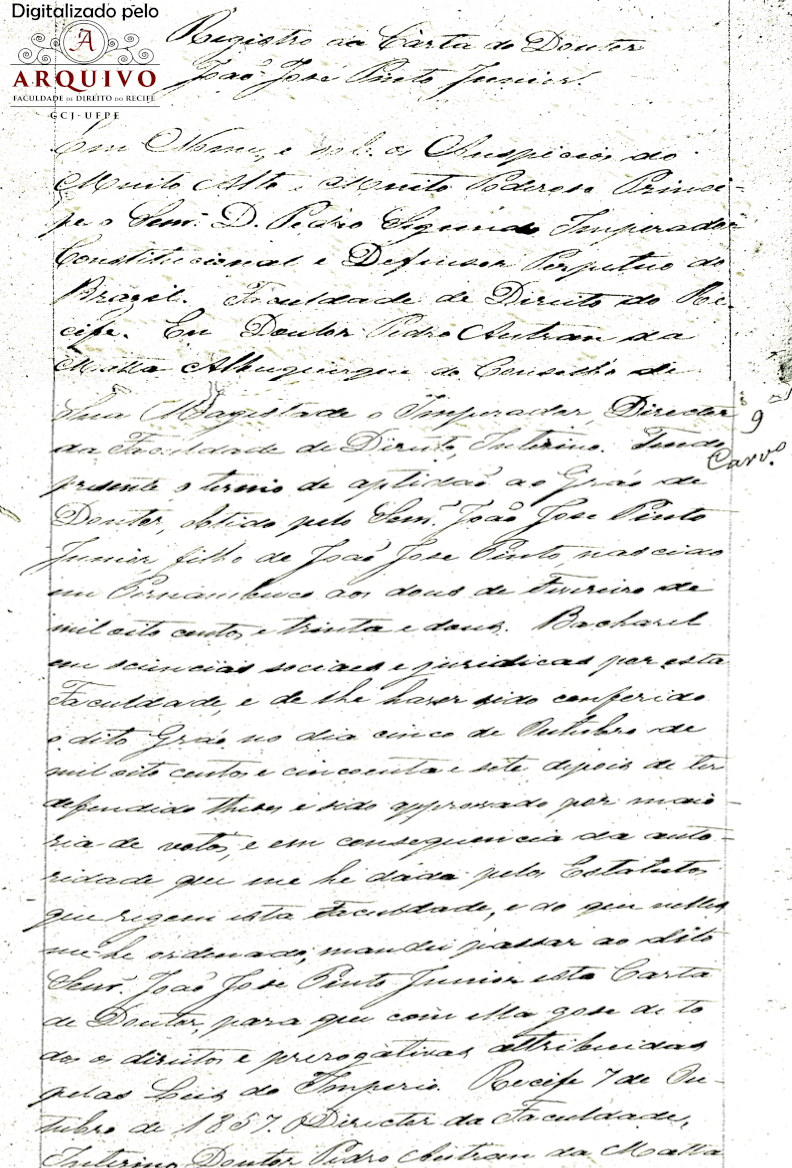 Digitalizado pelo
A
ARQUIVO
FACULDADE DE DIREITO DO RECIFE
CCJ-UFPE
Registro da Carta do Doutor
João José Pinto Junior.
Em Nome, e sob os Auspicios do
Muito Alto e Muito Poderoso Princi-
pe o Senr. D. Pedro Segundo Imperador
Constitucional e Defensor Perpetuo do
Brazil. Faculdade de Direito do Re-
cife. Eu Doutor Pedro Autran da
Matta Albuquerque do Conselho de
Sua Magestade o Imperador, Director
da Faculdade de Direito, Interino. Tendo
presente o termo de aptidaõ ao Gráo de
Doutor, obtido pelo Senr. Joaõ Jose Pinto
Junior filho de Joaõ Jose Pinto, nascido
em Pernambuco aos dous de Fevereiro de
mil oito centos e trinta e dous. Bacharel
em sciencias sociaes e juridicas por esta
Faculdade, e de lhe haver sido conferido
o dito Gráo no dia cinco de Outubro de
mil oito centos e cincoenta e sete depois de ter
defendido theses e sido approvado por maio-
ria de votos, e em consequencia da auto-
ridade que me he dada pelos Estatutos
que regem esta Faculdade, e do que nelles
me he ordenado, mandei passar ao dito
Senr. Joaõ Jose Pinto Junior esta Carta
de Doutor, para que com ella gose de to
dos os direitos e prerogativas attribuidas
pelas Leis do Imperio. Recife 7 de Ou-
tubro de 1857. O Director da Faculdade,
Interino Doutor Pedro Autran da Matta
9
Carv.o